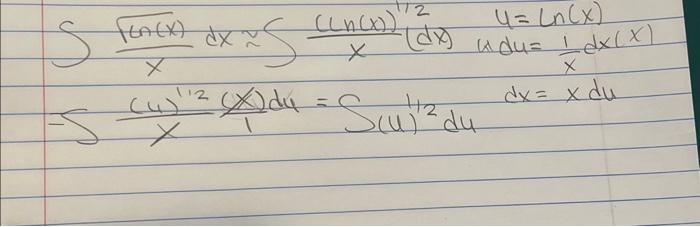 ∫ √ln(x)/x dx ≈ ∫ (ln(x))^1/2/x (dx) u = ln(x)
(x) du = 1/x dx (x)
= ∫ (u)^1/2/x (x)/1 du = ∫ (u)^1/2 du dx = x du